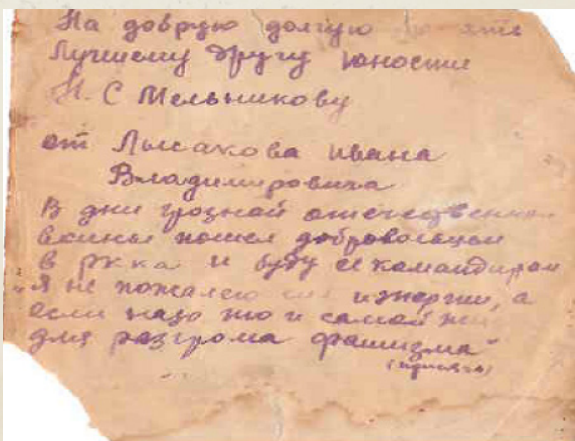 На добрую долгую
Лучшему другу юности
Н. С Мельникову
от Лысакова ивана
Владимировича
В дни грозной отечествен
войны пошел добровольцем
в ркка и буду её командиром
"Я не пожалею сил и энергии, а
если надо то и самой
для разгрома фашизма"
(присяга)